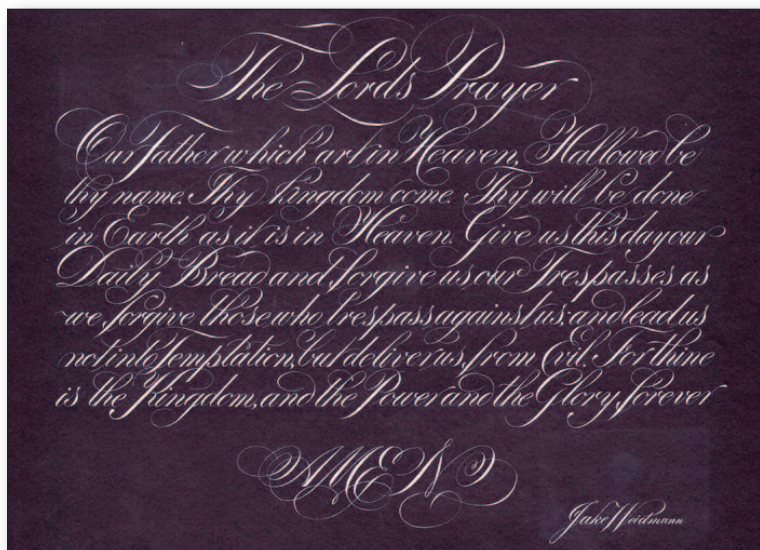 The Lords Prayer
Our Father which art in Heaven, Hallowed be
thy name. Thy kingdom come. Thy will be done
in Earth as it is in Heaven. Give us this day our
Daily Bread and forgive us our Trespasses as
we forgive those who trespass against us: and lead us
not into Temptation, but deliver us from Evil. For thine
is the Kingdom, and the Power and the Glory, forever
AMEN
Jake Weidmann